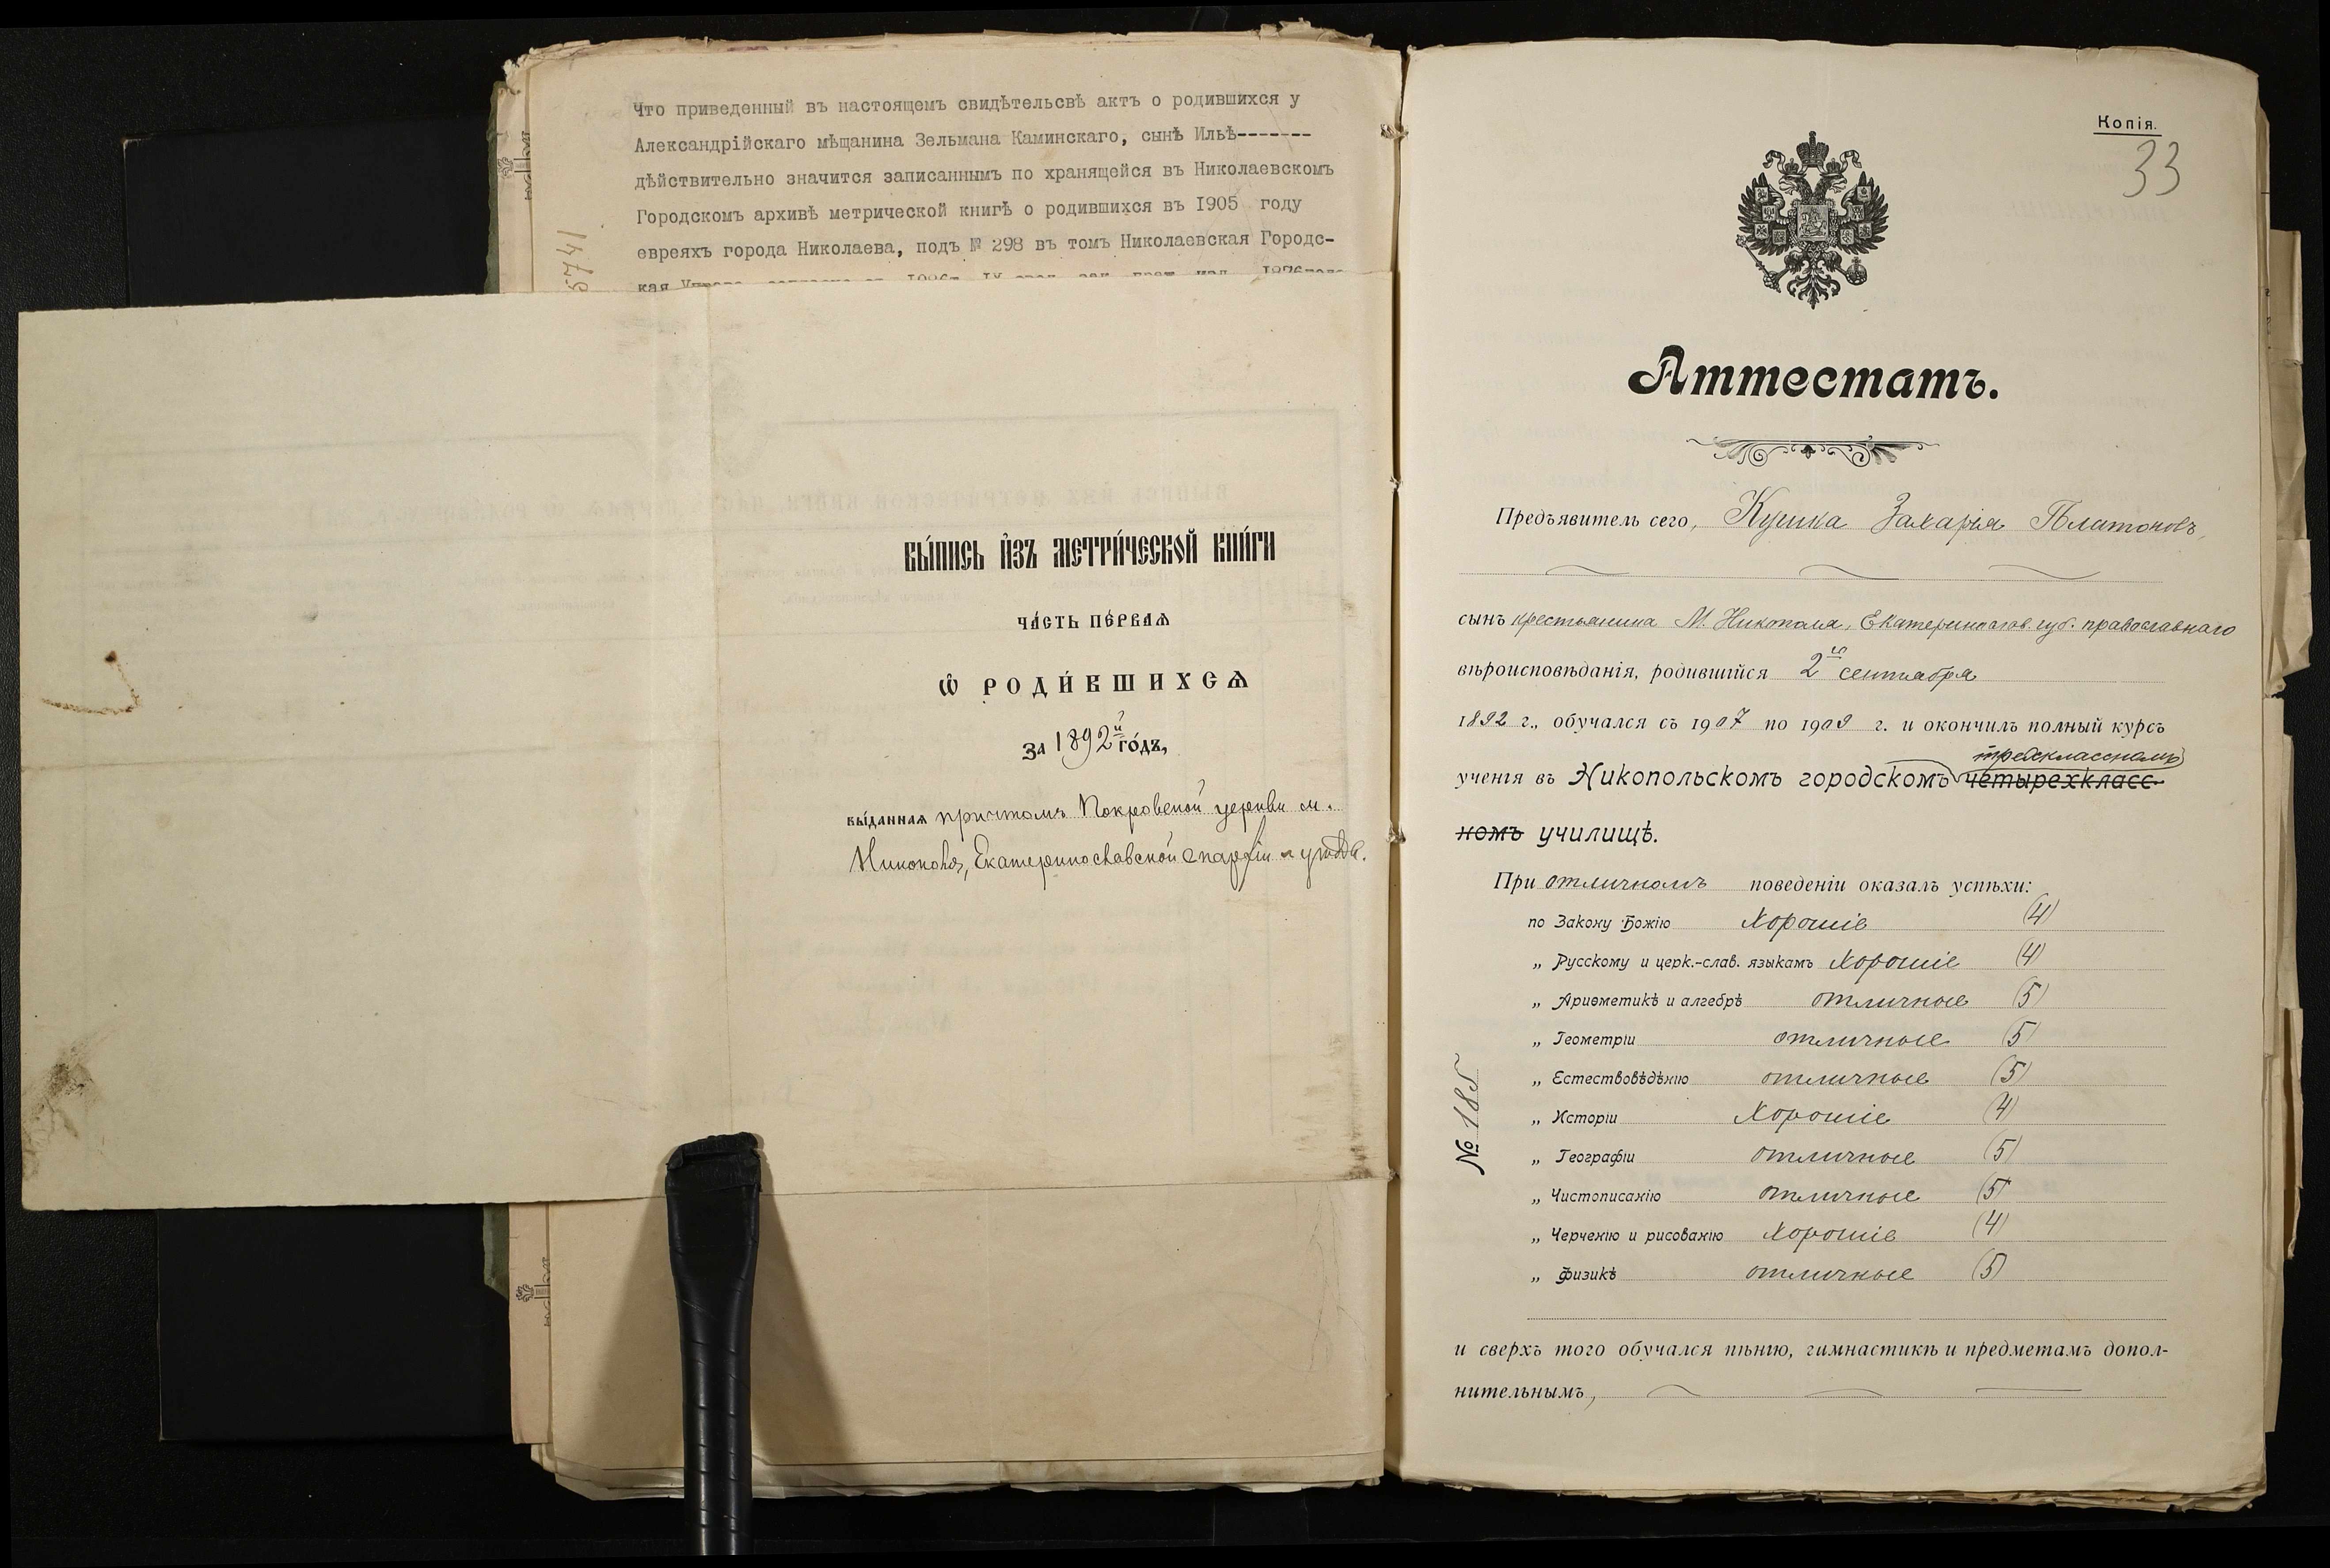 Что приведенный въ настоящемъ свидѣтельсвѣ актъ о родившихся у
Александрійскаго мѣщанина Зельмана Каминскаго, сынѣ Ильѣ-------
дѣйствительно значится записаннымъ по хранящейся въ Николаевскомъ
Городскомъ архивѣ метрической книгѣ о родившихся въ 1905 году
евреяхъ города Николаева, подъ № 298 въ томъ Николаевская Городс-
кая
5741
ВЫ́ПИСЬ И҆ЗЪ МЕТРИ́ЧЕСКОЙ КНИ́ГИ
ЧА́СТЬ ПЕ́РВАѦ
Ѡ҆ РОДИ́ВШИХСѦ
ЗА 1892й ГО́ДЪ,
вы́даннаѧ причтомъ Покровской церкви м.
Никополя, Екатеринославской епархіи и уѣзда.
Копія.
33
Аттестатъ.
Предъявитель сего, Кушка Захарія Платоновъ,
сынъ крестьянина М. Никополя, Екатеринослав. губ. православнаго
вѣроисповѣданія, родившійся 2го сентября
1892 г., обучался съ 1907 по 1909 г. и окончилъ полный курсъ
трехклассномъ
ученія въ Никопольскомъ городскомъ четырехкласс-
номъ училищѣ.
При отличномъ поведеніи оказалъ успѣхи:
по Закону Божію Хорошіе (4)
„ Русскому и церк.-слав. языкамъ Хорошіе (4)
„ Ариѳметикѣ и алгебрѣ отличные (5)
„ Геометріи отличные (5)
„ Естествовѣдѣнію отличные (5)
„ Исторіи Хорошіе (4)
„ Географіи отличные (5)
„ Чистописанію отличные (5)
„ Черченію и рисованію Хорошіе (4)
„ Физикѣ отличные (5)
№ 185
и сверхъ того обучался пѣнію, гимнастикѣ и предметамъ допол-
нительнымъ,